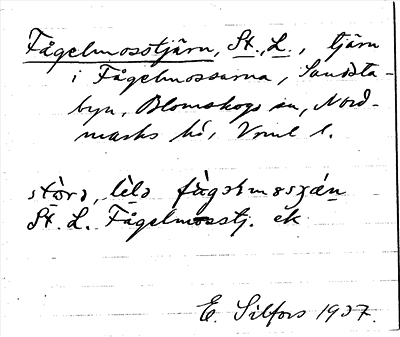 Fågelmosstjärn, St., L., tjärn
i Fågelmossarna, Sandsta-
byn, Blomskogs sn, Nord-
marks hd, Vrml l.
stòrə, lèlə fùgəlmosʒæ̀n
St. L. Fågelmosstj. ek
E. Silfors 1937.